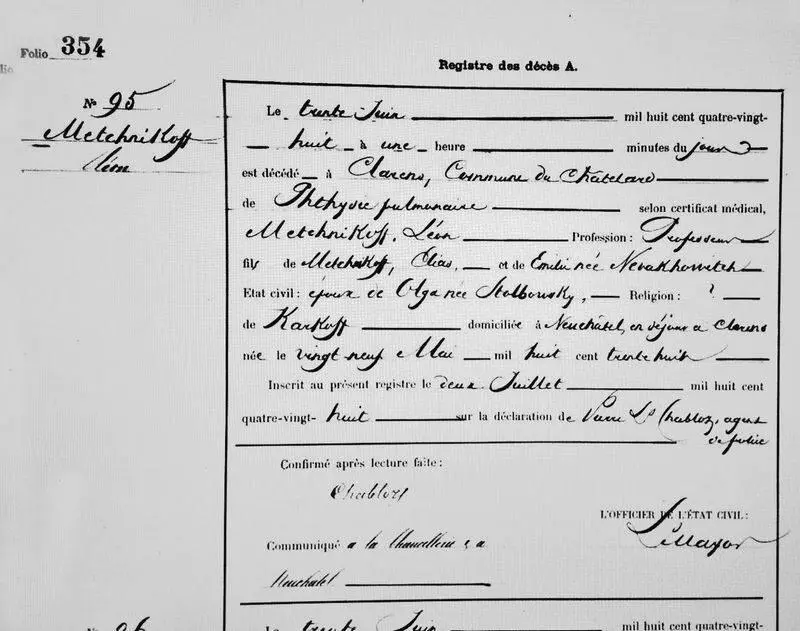 Folio 354
Registre des décès A.
№ 95
Metchnikoff
Léon
Le trente Juin mil huit cent quatre-vingt-
huit à une heure minutes du jour
est décédé à Clarens, Commune du Châtelard
de Phthysie pulmonaire selon certificat médical,
Metchnikoff, Léon Profession: Professeur
fils de Metchnikoff, Elias, et de Emilie née Nevakhowitch
Etat civil: époux de Olga née Stolbowsky, Religion: ?
de Karkoff domiciliée à Neuchâtel, en séjour à Clarens
née le vingt neuf Mai mil huit cent trente huit
Inscrit au présent registre le deux Juillet mil huit cent
quatre-vingt- huit sur la déclaration de Pierre Ls Chabloz, agent
de police
Confirmé après lecture faite:
Chabloz
L'OFFICIER DE L'ÉTAT CIVIL:
Communiqué a la Chancellerie & a
Neuchatel
№ 96
Le trente Juin mil huit cent quatre-vingt-